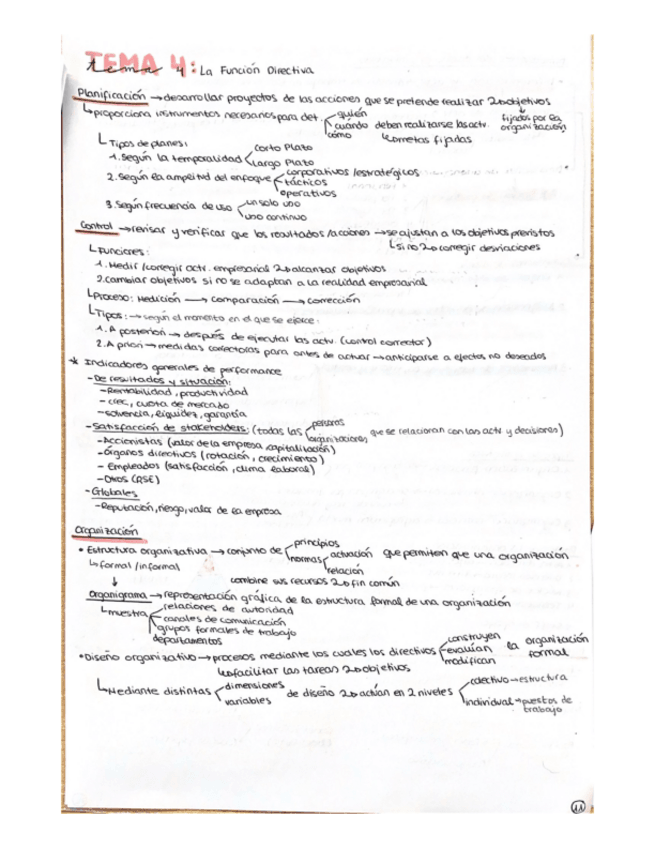 TEMA 4: La Función Directiva
Planificación → desarrollar proyectos de las acciones que se pretende realizar 2→ objetivos
↳ proporciona instrumentos necesarios para det. quién
cuándo deben realizarse las actv. fijados por la organización
cómo ↳ cometas fijadas
└ Tipos de planes:
1. Según la temporalidad corto plazo
largo plazo
2. Según la amplitud del enfoque corporativos / estratégicos
tácticos
operativos
3. Según frecuencia de uso un solo uso
uso continuo
Control → revisar y verificar que los resultados / acciones → se ajustan a los objetivos previstos
↳ si no 2→ corregir desviaciones
└ Funciones:
1. Medir / corregir actv. empresarial 2→ alcanzar objetivos
2. Cambiar objetivos si no se adaptan a la realidad empresarial
└ Proceso: Medición → comparación → corrección
└ Tipos: → según el momento en el que se ejerce:
1. A posteriori → después de ejecutar las actv. (control corrector)
2. A priori → medidas correctoras para antes de actuar → anticiparse a efectos no deseados
* Indicadores generales de performance
- De resultados y situación:
- Rentabilidad, productividad
- crec, cuota de mercado
- solvencia, liquidez, garantía
- Satisfacción de stakeholders: (todas las personas
organizaciones que se relacionan con las actv y decisiones)
- Accionistas (valor de la empresa, capitalización)
- Órganos directivos (rotación, crecimiento)
- Empleados (satisfacción, clima laboral)
- Otros (RSE)
- Globales
- Reputación, riesgo, valor de la empresa
Organización
• Estructura organizativa → conjunto de principios
normas actuación que permiten que una organización
relación
↳ formal / informal
combine sus recursos 2→ fin común
Organigrama → representación gráfica de la estructura formal de una organización
↳ muestra relaciones de autoridad
canales de comunicación
grupos formales de trabajo
departamentos
• Diseño organizativo → procesos mediante los cuales los directivos construyen
evalúan la organización formal
modifican
↳ facilitar las tareas 2→ objetivos
↳ Mediante distintas dimensiones
variables de diseño 2→ actúan en 2 niveles colectivo → estructura
individual → puestos de trabajo
11